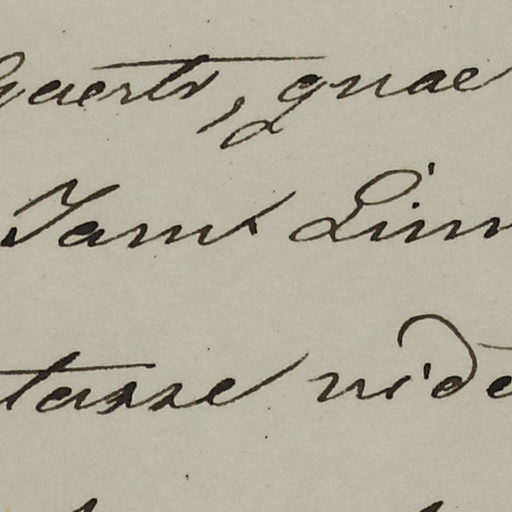 Gaertn, quae
Tam. Linn
tasse vide